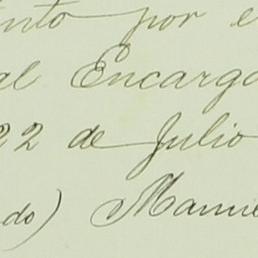 nto por e
al Encarga
22 de Julio
do) Manue